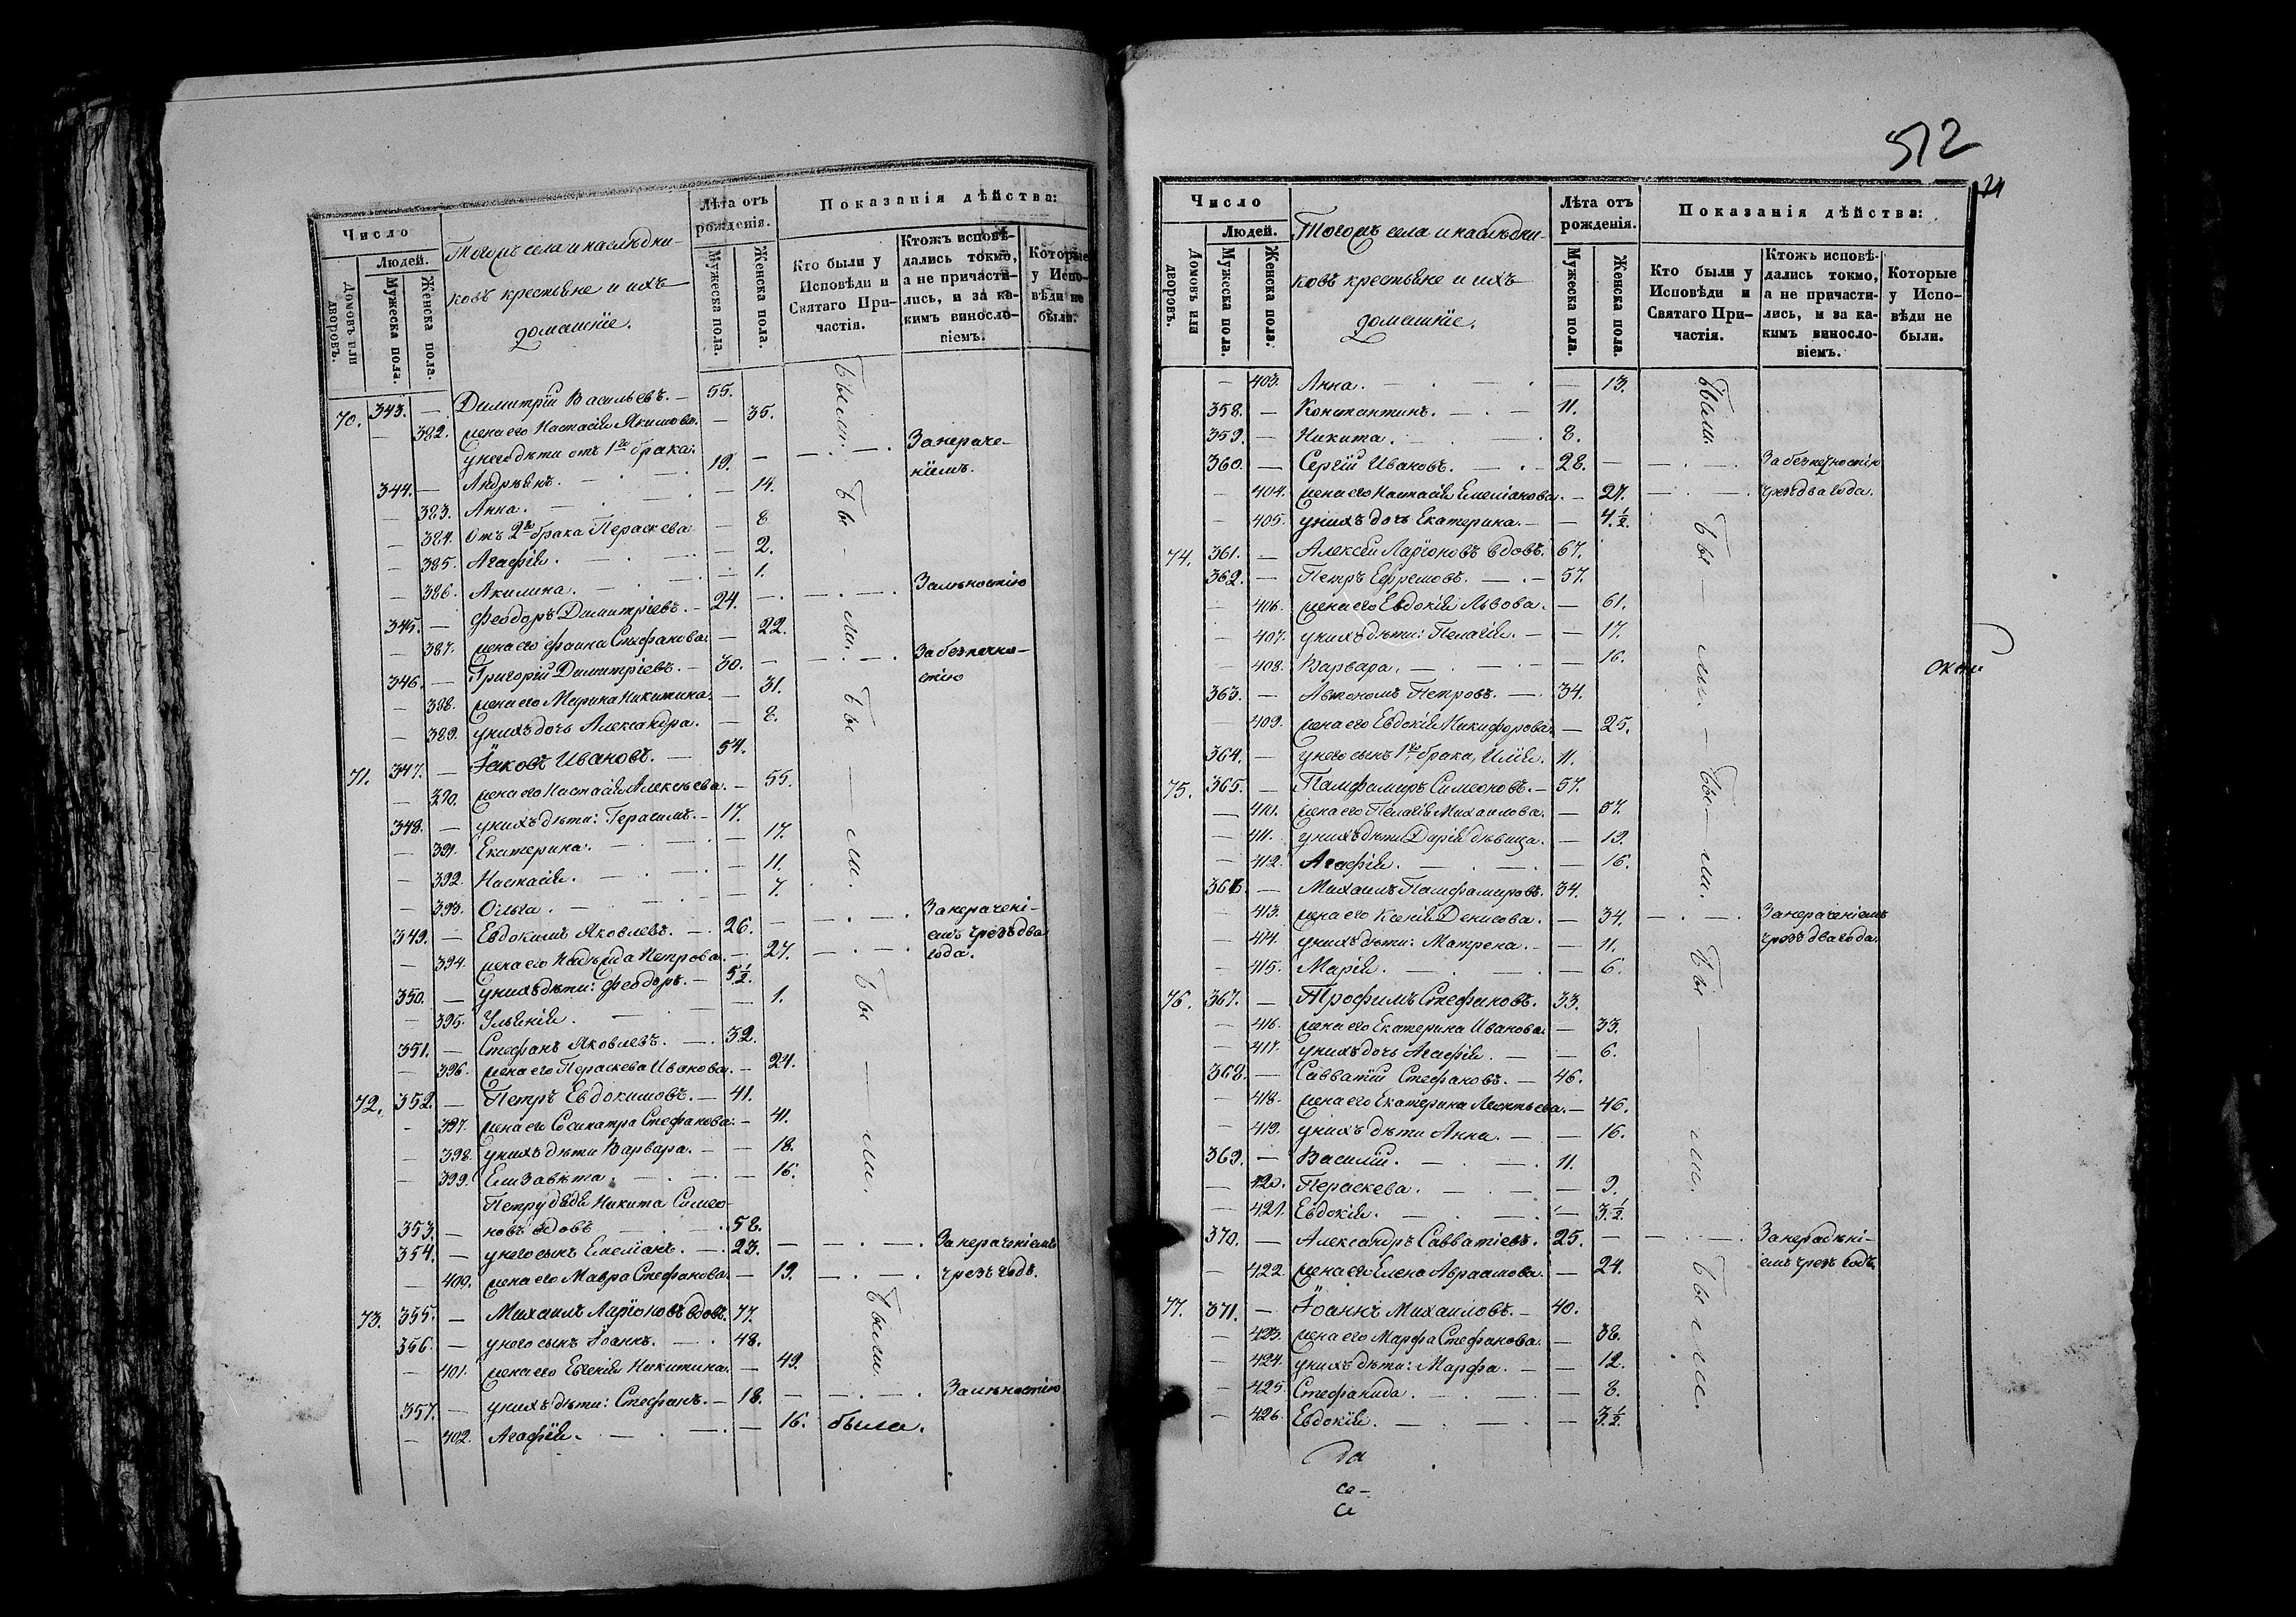 Число
Людей.
Домовъ или дворовъ.
Мужеска пола.
Женска пола.
Тогожъ села и наслѣдни-
ковъ крестьяне и ихъ
домашніе.
Лѣта отъ рожденія.
Мужеска пола.
Женска пола.
Показанія дѣйства:
Кто были у Исповѣди и Святаго Причастія.
Ктожъ исповѣдались токмо, а не причастились, и за какимъ винословіемъ.
Которые у Исповѣди не были.
70. 343. — Димитрій Васильевъ. — 55. Были.
— 382. жена его Настасія Якимова. — 35.
у него дѣти отъ 1го брака:
344. — Андреянъ. 19. — За нераче-
ніемъ.
— 383. Анна. — 14. Бы
— 384. Отъ 2го брака Пераскева — 8
— 385. Агафія. — 2.
— 386. Акилина. — 1.
345. — Феодоръ Димитріевъ. — 24. — За лѣностію
— 387. жена его Фаина Стефанова. — 22. ли.
346. — Григорій Димитріевъ. — 30. — За безпечно-
стію
— 388. жена его Марина Никитина. — 31. Бы
— 389. у нихъ дочь Александра. — 8.
71. 347. — Іаковъ Ивановъ. — 54.
— 390. жена его Настасія Алексѣева. — 55.
348. — у нихъ дѣти: Герасимъ. — 17.
— 391. Екатерина. — 17. ли.
— 392. Настасія. — 11.
— 393. Ольга. — 7.
349. — Евдокимъ Яковлевъ. — 26. — За нерачені-
емъ чрезъ два
года.
— 394. жена его Надежда Петрова. — 27.
350. — у нихъ дѣти: Феодоръ. — 5½. Бы
— 395. Ульянія. — 1.
351. — Стефанъ Яковлевъ. — 32.
— 396. жена его Пераскева Иванова. — 24.
72. 352. — Петръ Евдокимовъ. — 41.
— 397. жена его Сосипатра Стефанова. — 41.
— 398. у нихъ дѣти Варвара. — 18. ли.
— 399. Елизавѣта. — 16.
Петру дядя Никита Симео-
353. — новъ вдовъ 58.
354. — у него сынъ Емеліанъ. — 23. — За нерачениемъ
— 400. жена его Мавра Стефанова. — 19. — чрезъ годъ.
73. 355. — Михаилъ Ларіоновъ вдовъ. 77. Были.
356. — у него сынъ Іоаннъ. — 48.
— 401. жена его Евгенія Никитина. — 49.
357. — у нихъ дѣти: Стефанъ. — 18. — За лѣностію
— 402. Агафія. — 16. была.
512
Число
Людей.
Домовъ или дворовъ.
Мужеска пола.
Женска пола.
Тогожъ села и наслѣдни-
ковъ крестьяне и ихъ
домашніе.
Лѣта отъ рожденія.
Мужеска пола.
Женска пола.
Показанія дѣйства:
Кто были у Исповѣди и Святаго Причастія.
Ктожъ исповѣдались токмо, а не причастились, и за какимъ винословіемъ.
Которые у Исповѣди не были.
— 403. Анна. — 13. Были.
358. — Константинъ. — 11.
359. — Никита. — 8.
360. — Сергій Ивановъ. — 28. — За безпечностію
— 404. жена его Настасія Емеліанова. — 27. — чрезъ два года.
— 405. у нихъ дочь Екатерина. — 4½. Бы
74. 361. — Алексій Ларіоновъ вдовъ. 67.
362. — Петръ Ефремовъ. — 57.
— 406. жена его Евдокія Львова. — 61.
— 407. у нихъ дѣти: Пелагія. — 17.
— 408. Варвара. — 16. ли.
363. — Автономъ Петровъ. — 34.
— 409. жена его Евдокія Никифорова. — 25.
364. — у него сынъ 1го брака, Илія. 11.
75. 365. — Памфамиръ Симеоновъ. — 57. Бы
— 410. жена его Пелагія Михаилова. — 57.
— 411. у нихъ дѣти Дарія дѣвица. — 19.
— 412. Агафія. — 16. ли.
366. — Михаилъ Памфамировъ. 34.
— 413. жена его Ксенія Денисова. — 34. — За нерачениемъ
— 414. у нихъ дѣти: Матрена. — 11. чрезъ два года.
— 415. Марія. — 6. Бы
76. 367. — Трофимъ Стефановъ. 33.
— 416. жена его Екатерина Иванова. — 33.
— 417. у нихъ дочь Агафія. — 6.
368. — Савватій Стефановъ. — 46.
— 418. жена его Екатерина Леонтьева. — 46.
— 419. у нихъ дѣти Анна. — 16. ли.
369. — Василій. — 11.
— 420. Пераскева. — 9.
— 421. Евдокія. — 3½.
370. — Александръ Савватіевъ. 25. — За нерадѣні-
— 422. жена его Елена Авраамова. — 24. емъ чрезъ годъ.
77. 371. — Іоаннъ Михаиловъ. — 40. Были.
— 423. жена его Марфа Стефанова. — 38.
— 424. у нихъ дѣти: Марфа. — 12.
— 425. Стефанида. — 8.
— 426. Евдокія. — 3½.